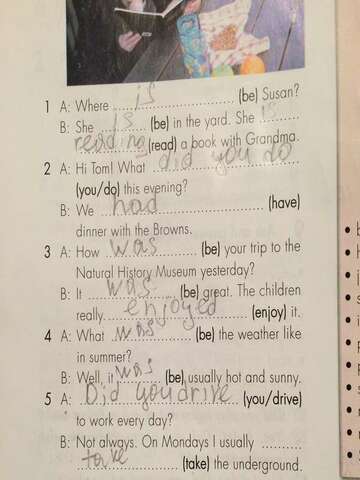 1 A: Where is (be) Susan?
B: She is (be) in the yard. She is
reading (read) a book with Grandma.
2 A: Hi Tom! What did you do
(you/do) this evening?
B: We had (have)
dinner with the Browns.
3 A: How was (be) your trip to the
Natural History Museum yesterday?
B: It was (be) great. The children
really enjoyed (enjoy) it.
4 A: What was (be) the weather like
in summer?
B: Well, it was (be) usually hot and sunny.
5 A: Did you drive (you/drive)
to work every day?
B: Not always. On Mondays I usually
take (take) the underground.